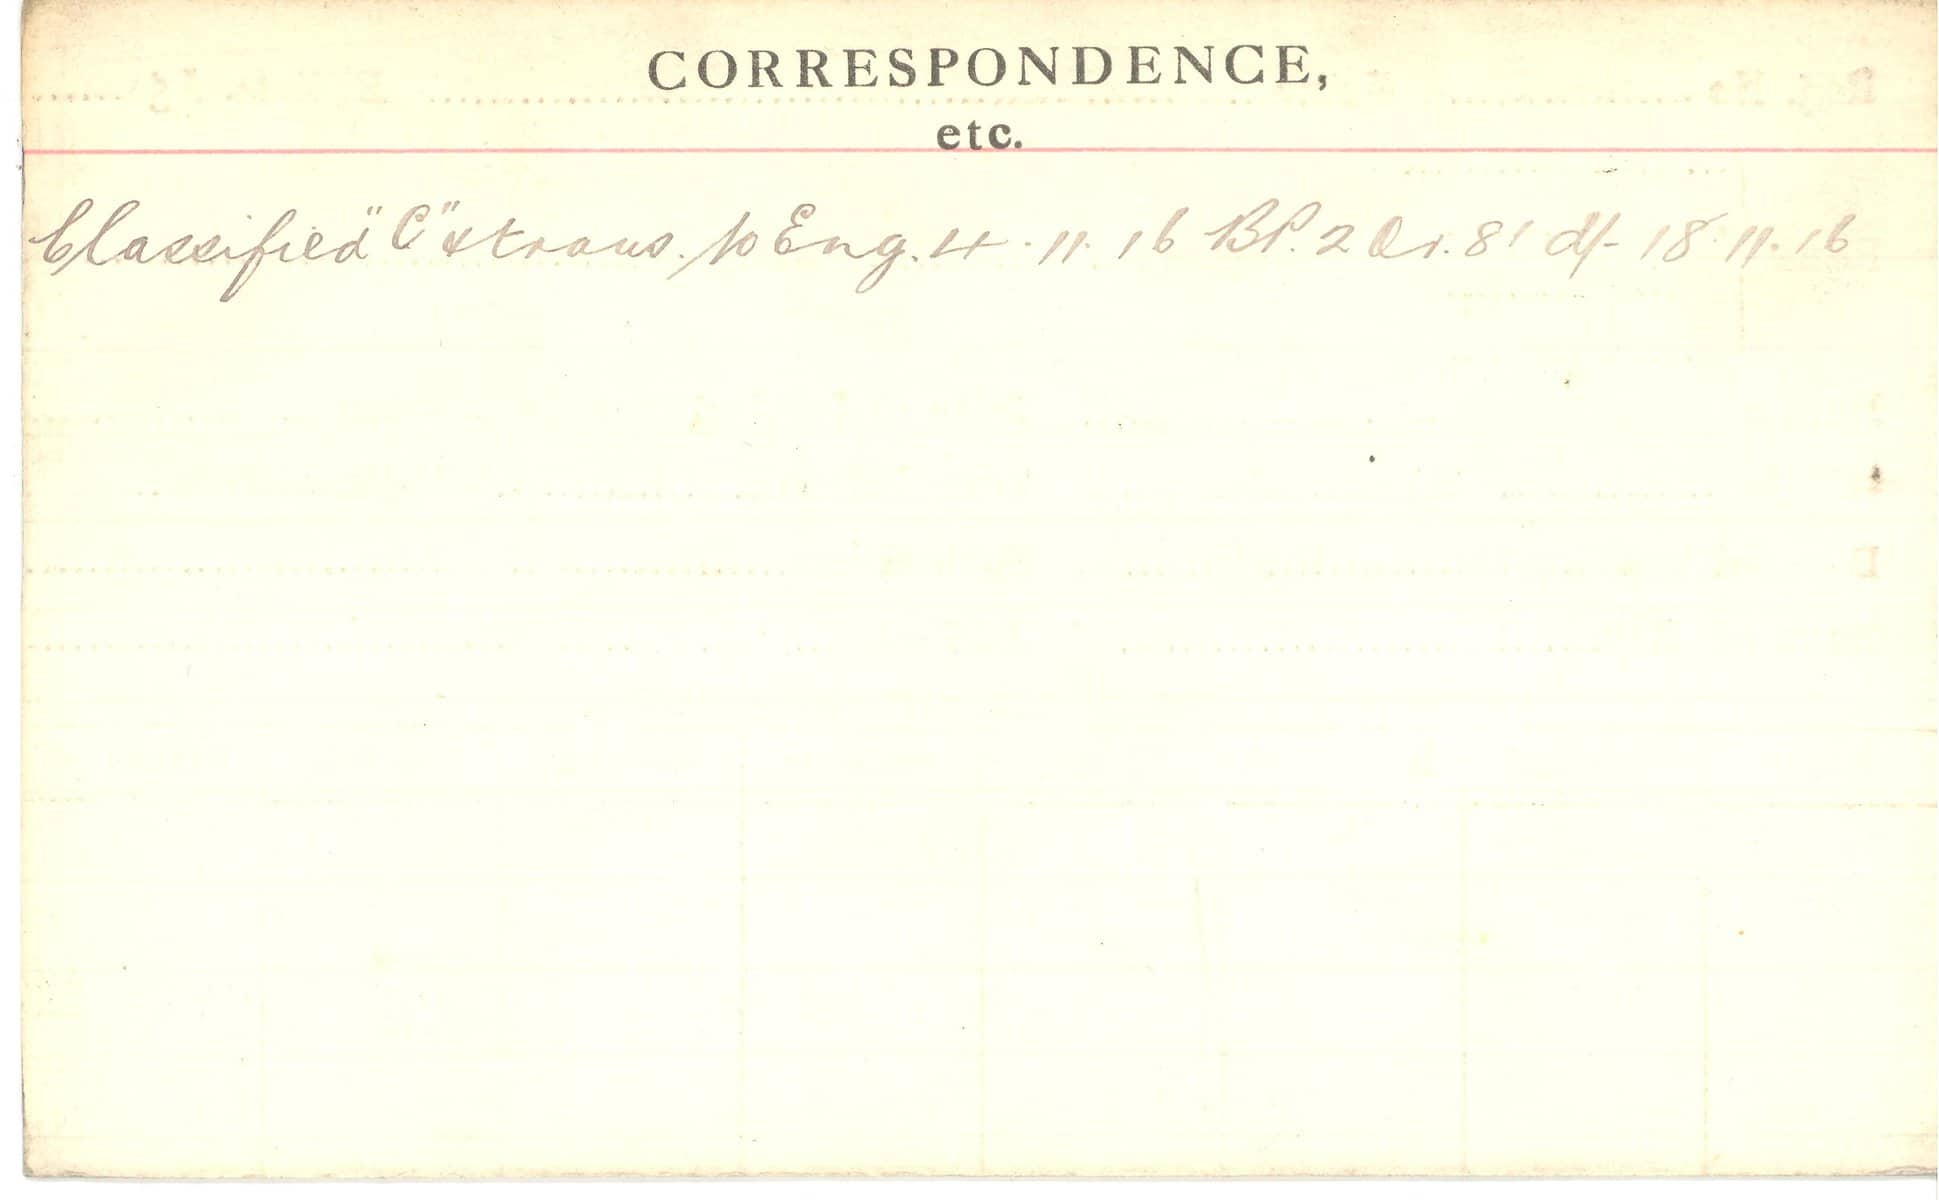 CORRESPONDENCE,
etc.
Classified "C" & trans. to Eng. 4.11.16 Bf. 2 Or. 81 d/- 18.11.16